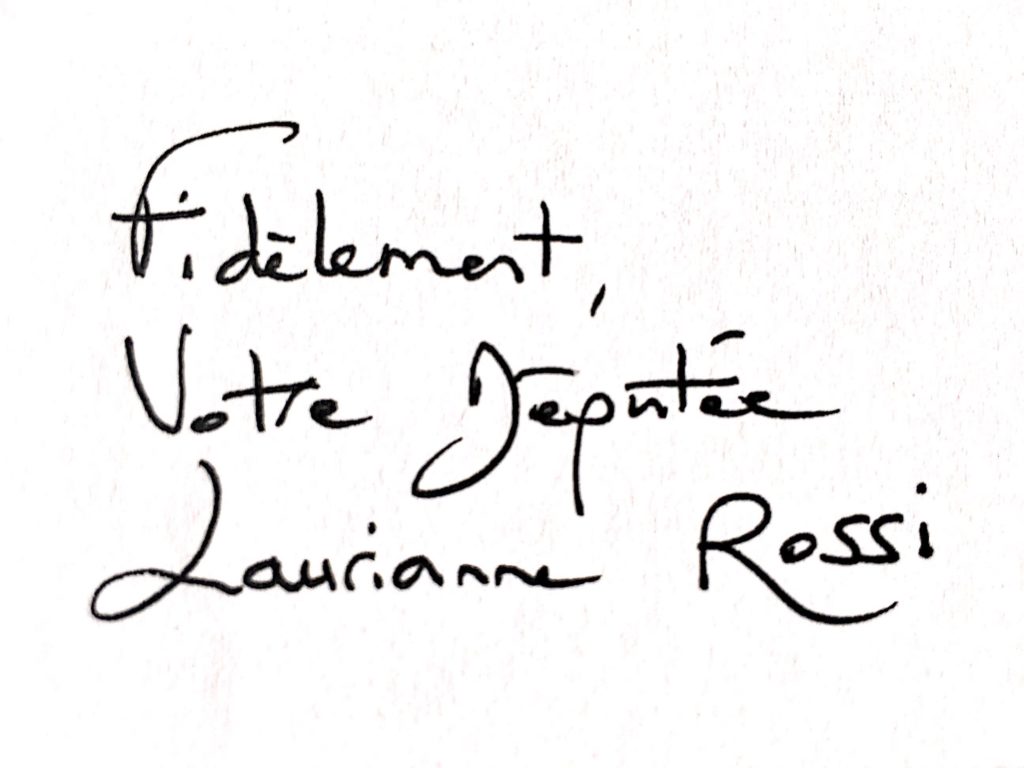 Fidèlement,
Votre Députée
Laurianne Rossi